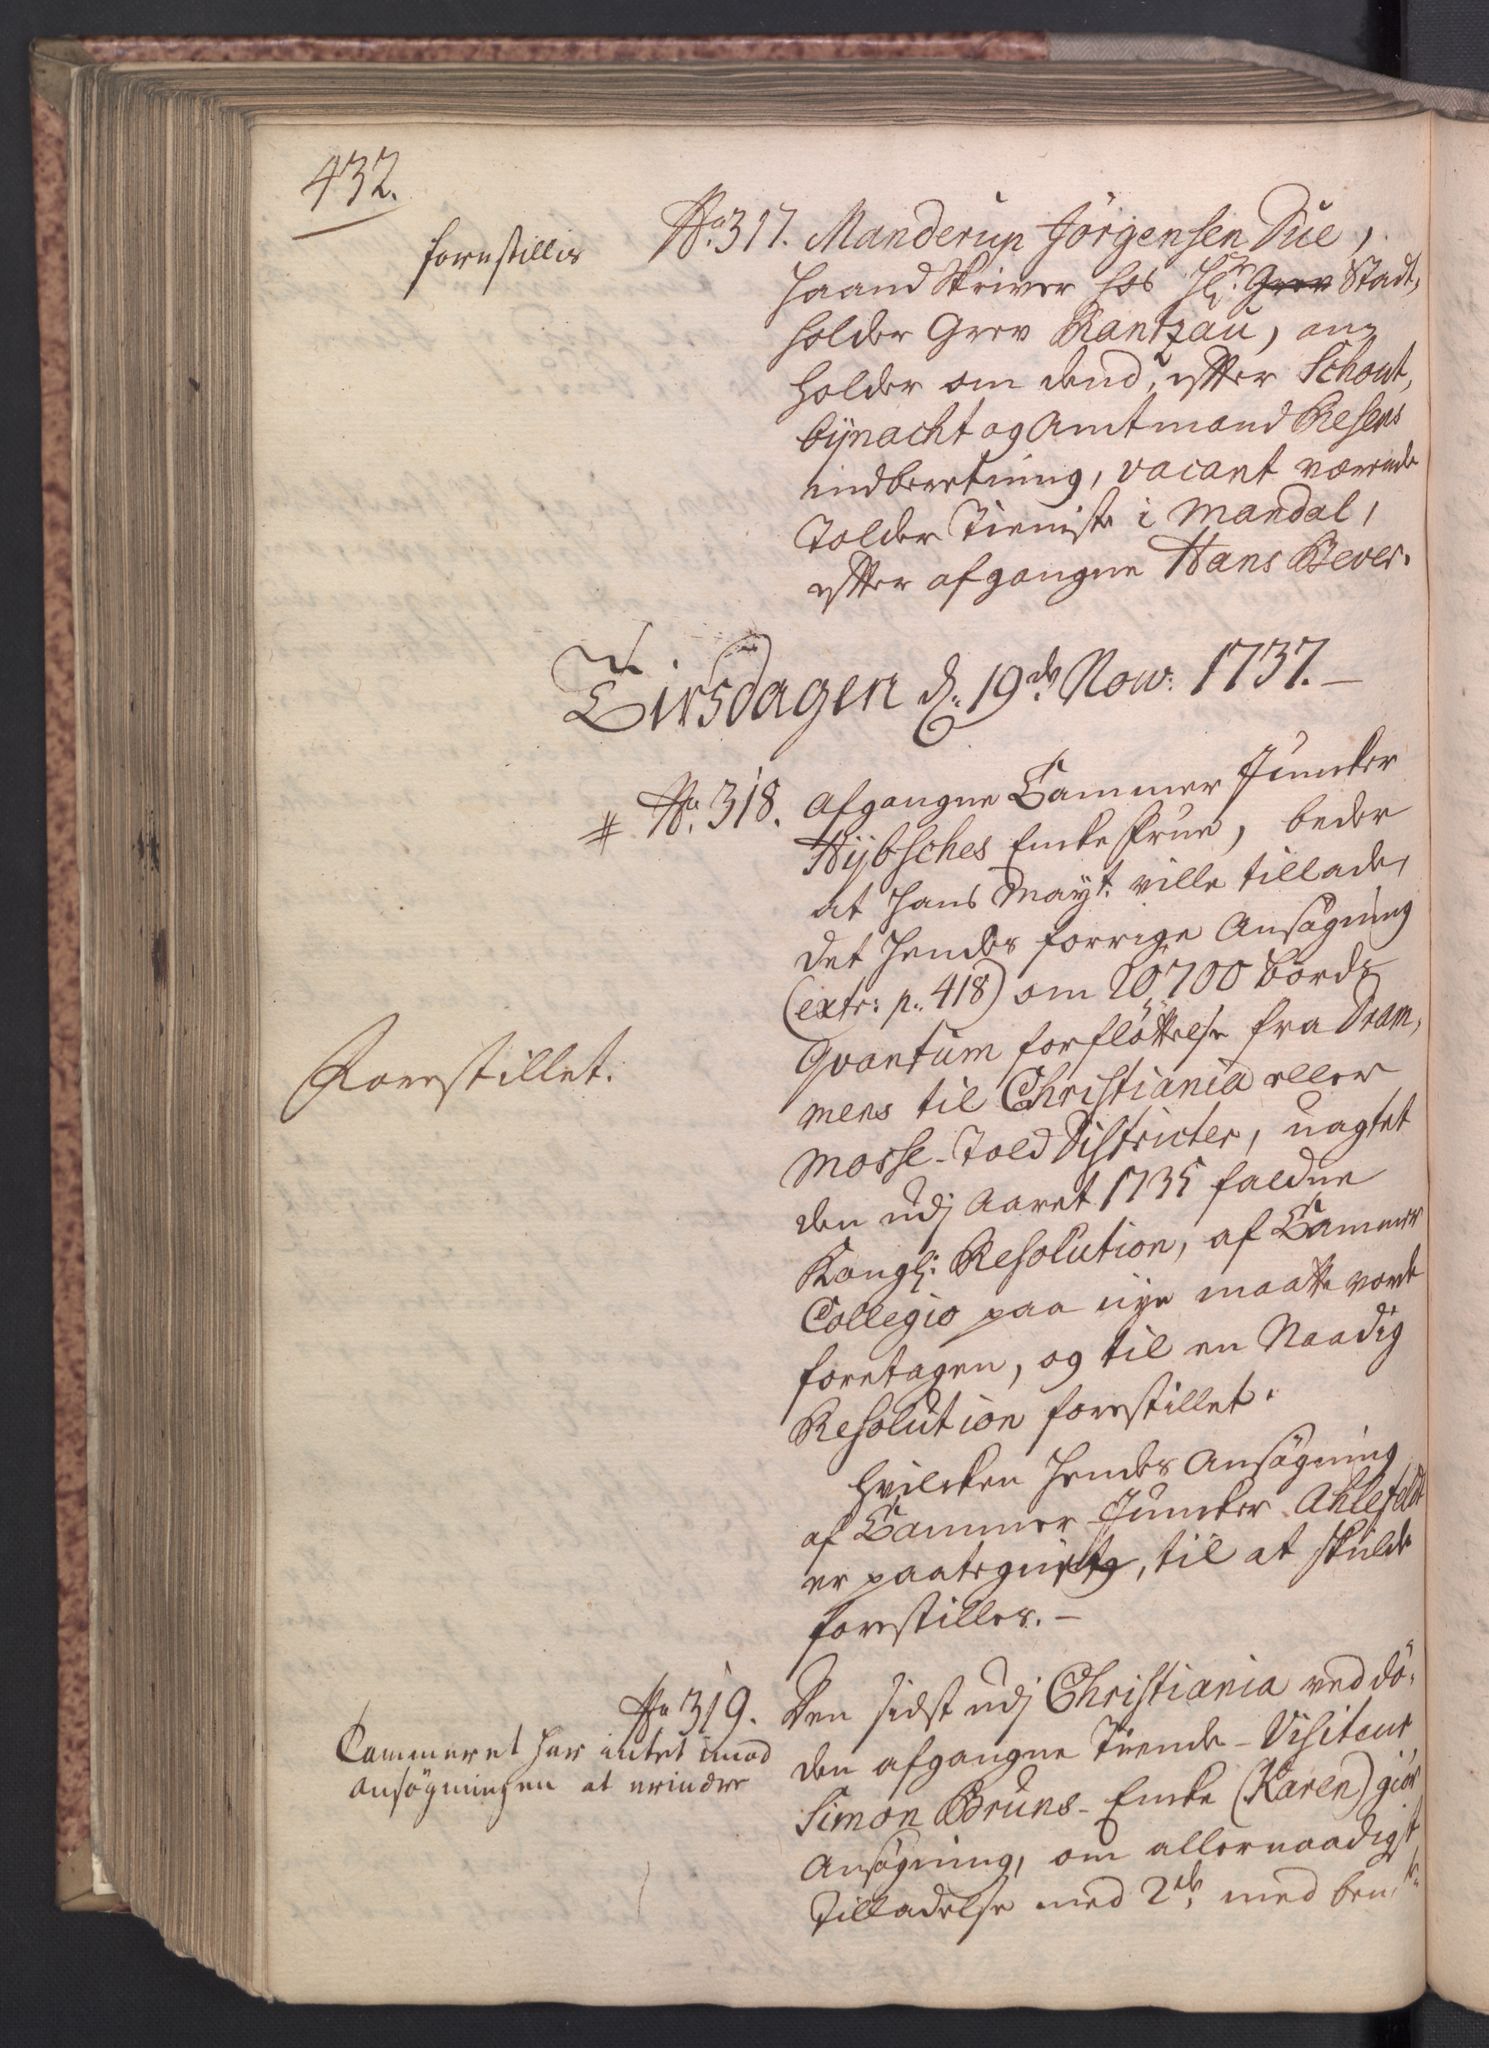 432.
forestillis
No. 317. Manderup Jörgensen Due,
Haand Skriver hos Hr. Grev Stadt,
holder Grev Rantzau, an,
holder om dend, efter Schout,
bynacht og Amtmand Resens
indberetning, vacant værende
Tolder Tieniste i Mandal,
efter afgangne Hans Bever.
Tirsdagen d. 19de Now: 1737.
# No. 318. Afgangne Cammer Juncker
Hybsches Encke Frue, beder
at Hans Mayt. ville tillade,
det hendes forrige Ansögning
(extr: p. 418) om 20700 Bords
Qvantum forflöttelse fra Dram,
mens til Christiania eller
Mosse-Told Districter, uagtet
den udj Aaret 1735 faldne
Kongl: Resolution, af Cammer
Collegio paa nye maatte vorde
foretagen, og til en Naadig
Resolution forestillet.
Forestillet.
Hvilcken Hendes Ansögning
af Cammer-Juncker Ahlefeldt
er paategnet, til at skulde
forestilles.
No 319. Den sidst udj Christiania ved dö,
den afgangne Tiende-Visiteur
Simon Bruns-Encke (Karen) giör
Ansögning, om allernaadigst
Tilladelse med 2de med
Cammeret har intet imod
ansögningen at erindre